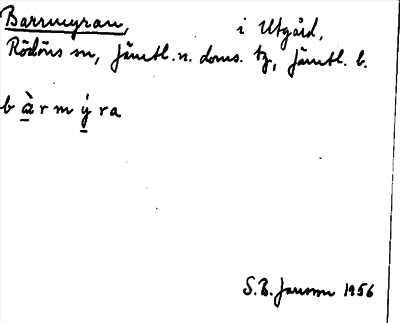 Barrmyran, i Utgård,
Rödöns sn, Jämtl. n. doms. tg, Jämtl. l.
b à r m ý r a
S.B. Jansson 1956